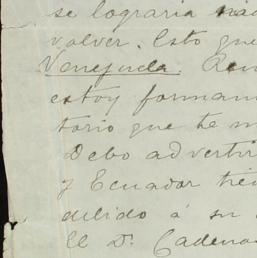 se lograria
volver. Esto que
Venezuela.
estoy forman
torio que te m
Debo advertir
y Ecuador tie
dilido á su
El Dr. Cadena